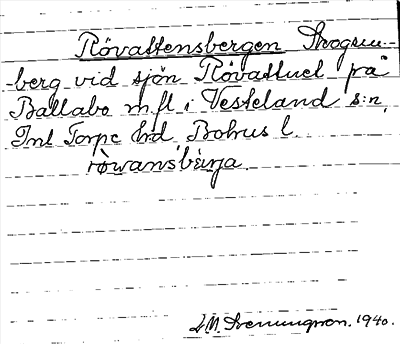 Rövattensbergen Skogsu-
-berg vid sjön Rövattnet på
Ballabo m.fl i Västerland s:n,
Inl Torpe hrd Bohus l.
röwansbärja
1940.